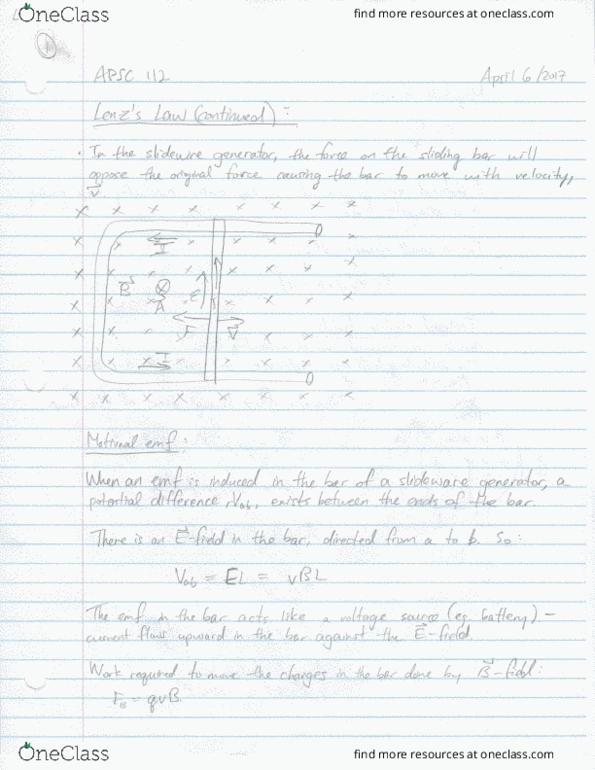 OneClass
find more resources at oneclass.com
1
APSC 112
April 6/2017
Lenz's Law (continued):
• In the slidewire generator, the force on the sliding bar will
oppose the original force causing the bar to move with velocity,
v
I
B
A
ε
F
v
I
Motional emf:
When an emf is induced in the bar of a slideware generator, a
potential difference, Vab, exists between the ends of the bar.
There is an E-field in the bar, directed from a to b. So:
Vab = EL = vBL
The emf in the bar acts like a voltage source (eg. battery) –
current flows upward in the bar against the E-field.
Work required to move the charges in the bar done by B-field:
FB = qvB
OneClass
find more resources at oneclass.com